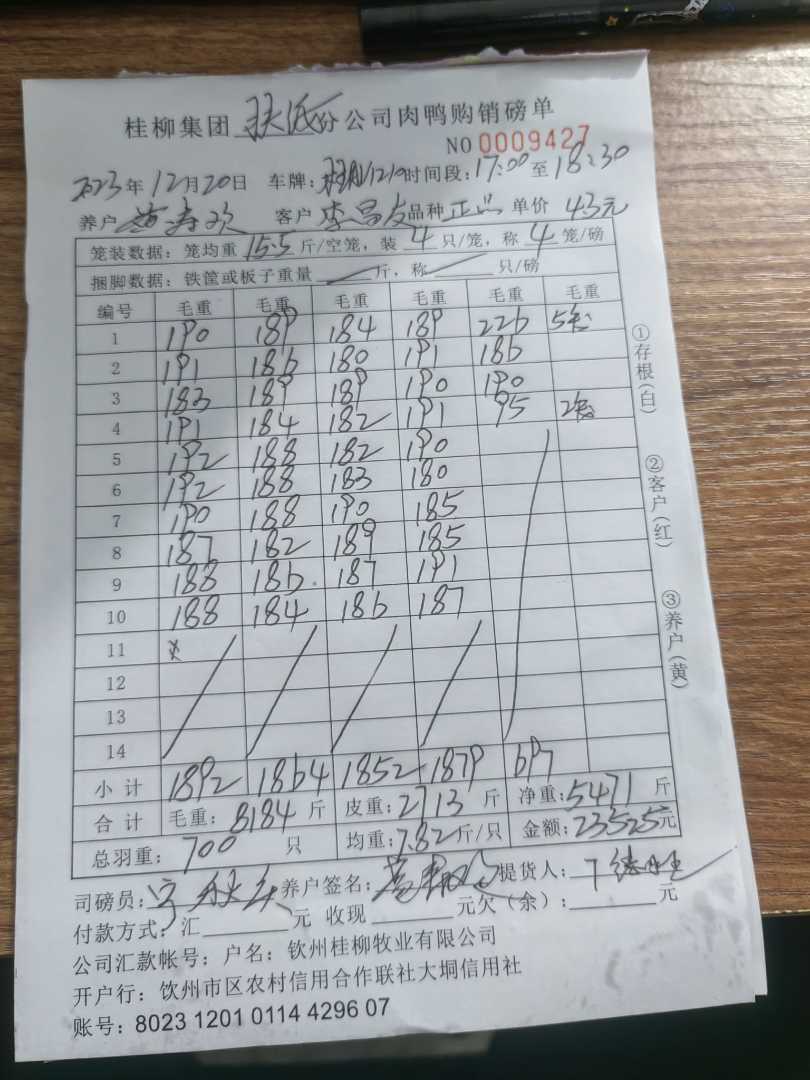 桂柳集团 分公司肉鸭购销磅单
NO 0009427
2023年12月20日 车牌: 时间段:17:00至18:30
养户 黄寿欢 客户 李昌友 品种 正品 单价 4.3元
笼装数据:笼均重 15.5 斤/空笼,装 4 只/笼,称 4 笼/磅
捆脚数据:铁筐或板子重量 斤,称 只/磅
编号 毛重 毛重 毛重 毛重 毛重 毛重
1 190 189 184 189 226 5笼
2 191 186 180 191 186
3 183 189 189 190 190
4 191 184 182 191 95 2笼
5 192 188 182 190
6 192 188 183 180
7 190 188 190 185
8 187 182 189 185
9 188 186 187 191
10 188 184 186 187
11
12
13
14
小计 1892 1864 1852 1879 697
合计 毛重:8184斤 皮重:2713斤 净重:5471斤
总羽重:700只 均重:7.82斤/只 金额:23525元
司磅员: 养户签名: 提货人:
付款方式:汇 元 收现 元欠(余): 元
公司汇款帐号:户名:钦州桂柳牧业有限公司
开户行:钦州市区农村信用合作联社大垌信用社
账号:8023 1201 0114 4296 07
①存根(白)
②客户(红)
③养户(黄)